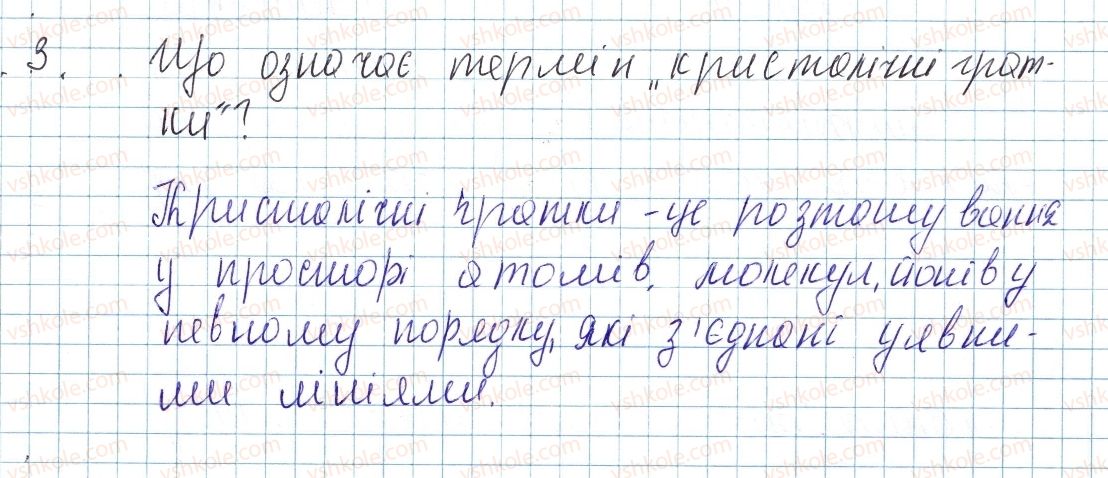 3. Що означає термін „кристалічні грат-
ки"?
Кристалічні гратки - це розташування
у просторі атомів, молекул, йонів у
певному порядку, які з'єднані уявни-
ми лініями.